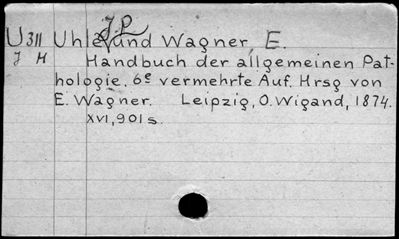 J.P.
U311 Uhle und Wagner, E.
J H Handbuch der allgemeinen Pat-
hologie. 6e vermehrte Auf. Hrsg von
E. Wagner. Leipzig, O. Wigand, 1874.
XVI, 901 s.